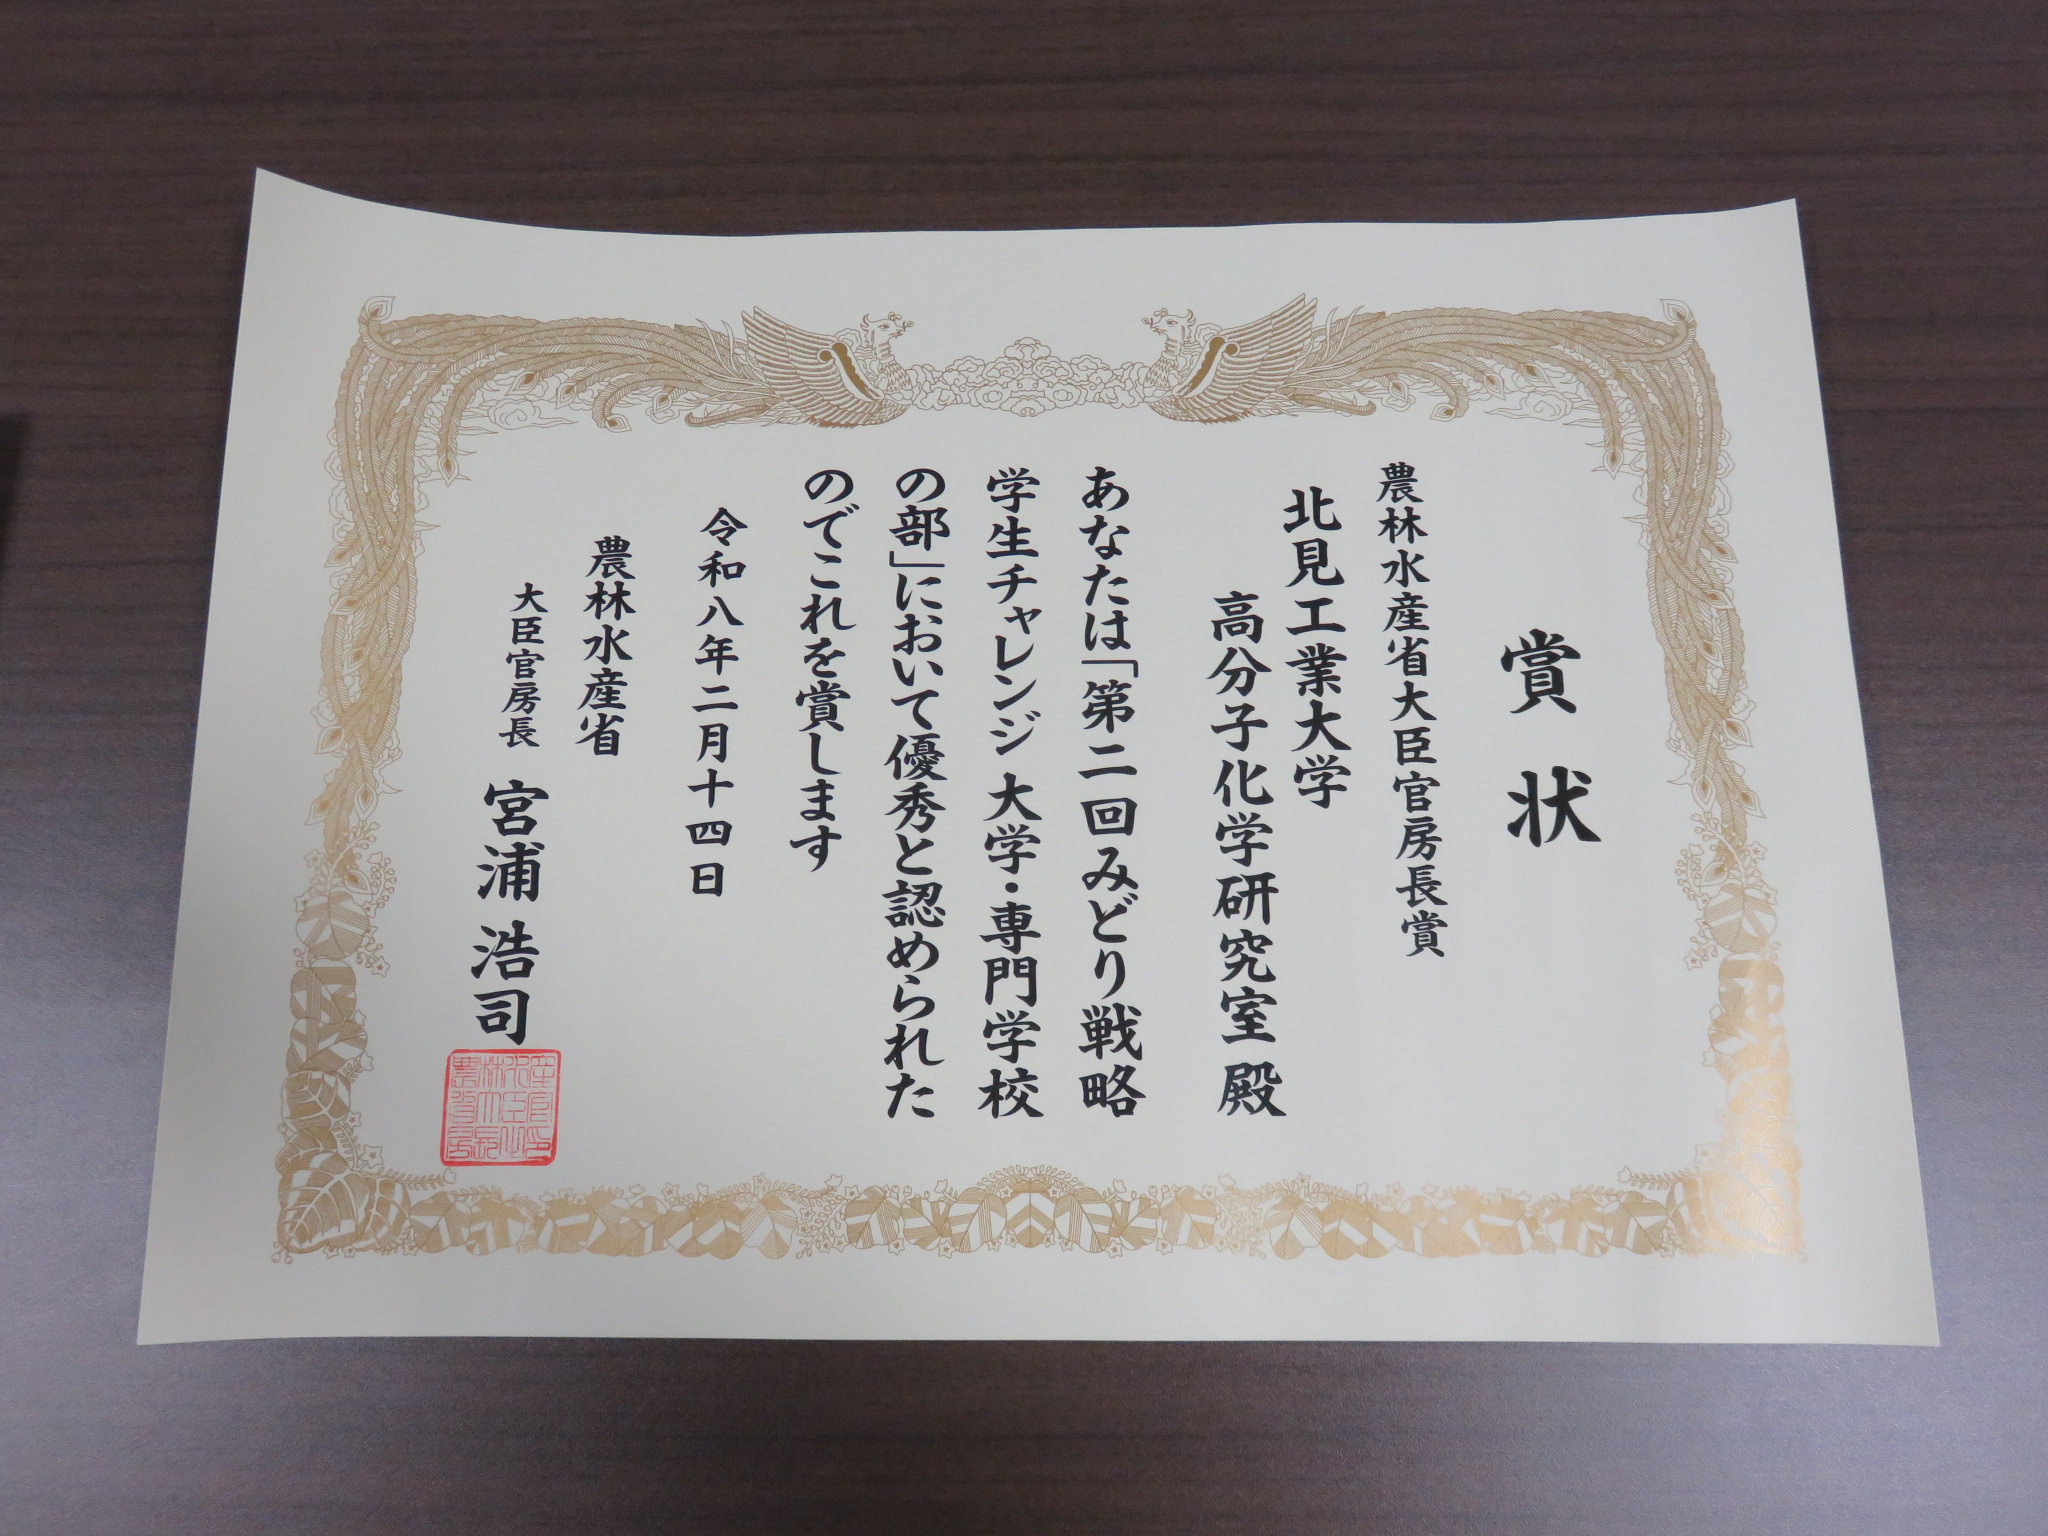 賞状
農林水産省大臣官房長賞
北見工業大学
高分子化学研究室 殿
あなたは「第二回みどり戦略
学生チャレンジ 大学・専門学校
の部」において優秀と認められた
のでこれを賞します
令和八年二月十四日
農林水産省
大臣官房長 宮浦浩司